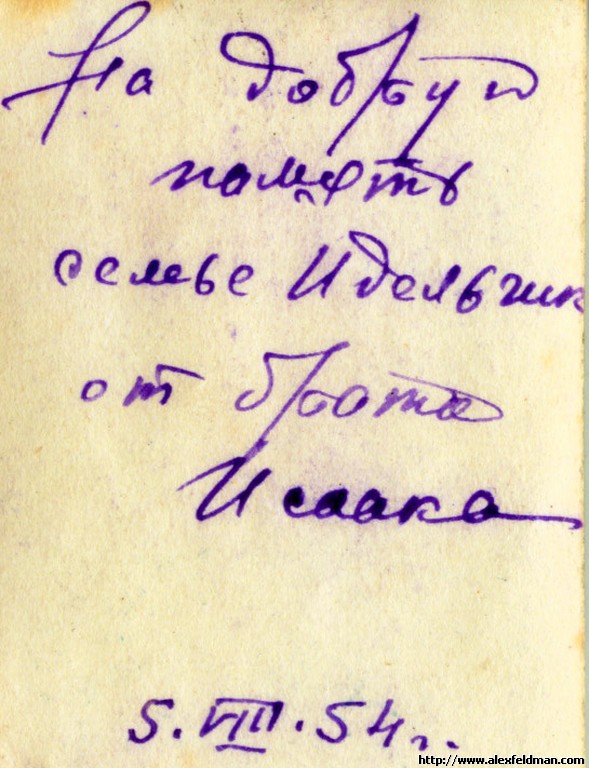 На добрую
память
семье Идельчик
от брата
Исаака
5.VIII.54 г.
http://www.alexfeldman.com